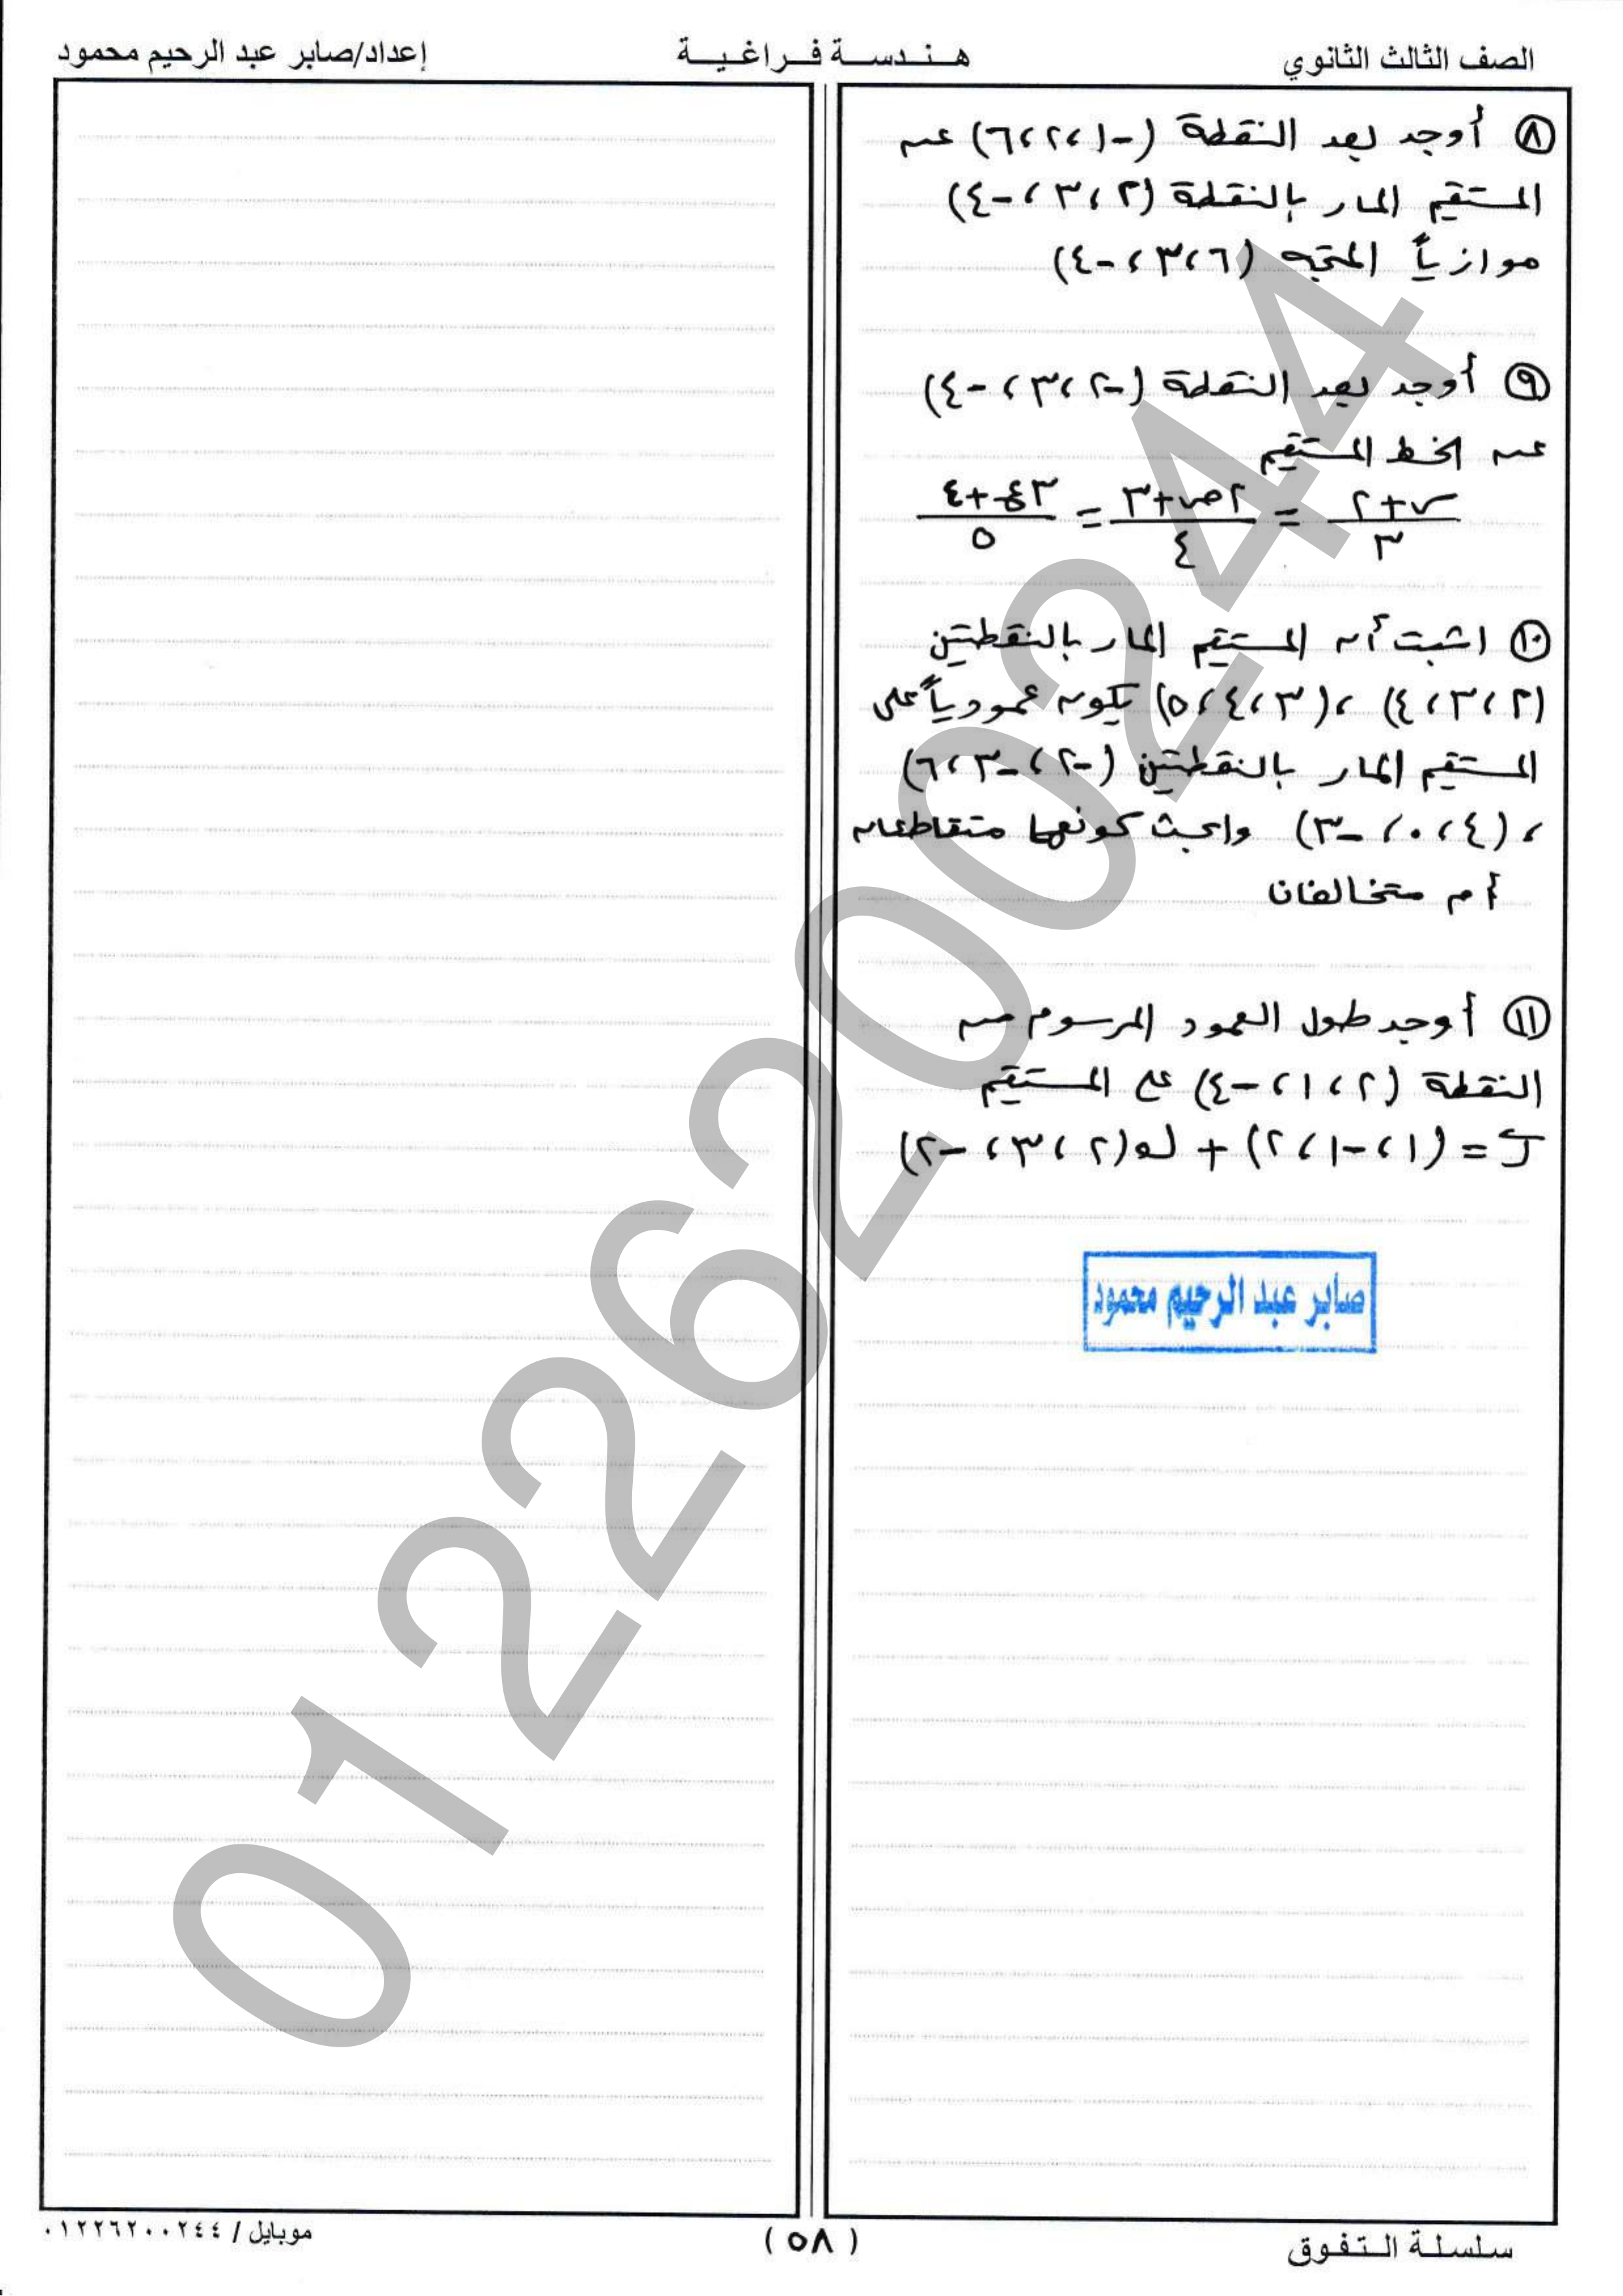 الصف الثالث الثانوي
هـنـدسـة فـراغـيـة
إعداد/صابر عبد الرحيم محمود
٨ أوجد بعد النقطة (-١، ٢، ٦) عن
المستقيم المار بالنقطة (٢، ٣، -٤)
موازياً المتجه (٦، ٣، -٤)
٩ أوجد بعد النقطة (-٢، ٣، -٤)
عن الخط المستقيم
(س+٢)/٣ = (٢ص+٣)/٤ = (٣ع+٤)/٥
١٠ اثبت أن المستقيم المار بالنقطتين
(٢، ٣، ٤) ، (٣، ٤، ٥) يكون عمودياً على
المستقيم المار بالنقطتين (-٢، -٣، ٦)
، (٤، ٠، -٣) وابحث كونهما متقاطعان
أم متخالفان
١١ أوجد طول العمود المرسوم من
النقطة (٢، ١، -٤) على المستقيم
ر = (١، -١، ٢) + ك(٢، ٣، -٢)
صابر عبد الرحيم محمود
01226200244
سلسلة التفوق
(٥٨)
موبايل / ٠١٢٢٦٢٠٠٢٤٤